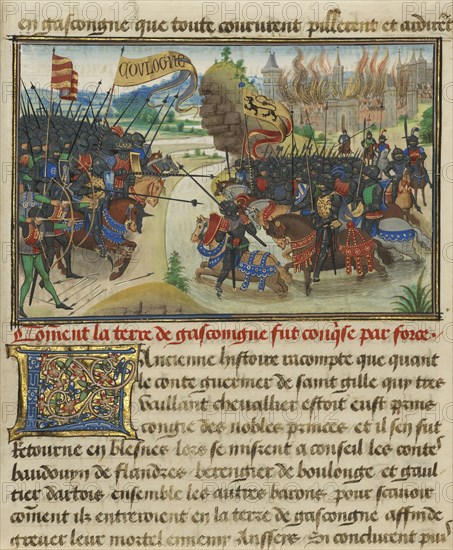 en gascongne que toute coururent pillerent et ardirēt
COULOGNE
Cōment la terre de gascoingne fut conq̄se par force.
L Ancienne histoire racompte que quant
le conte guermer de saint gille qui tres
vaillant chevallier estoit eust prins
congie des nobles princes et il sen fut
Retourne en blesues lors se misrent a conseil les contes
baudouyn de flandres berengier de boulongne et gaul
tier dartois ensemble les autres barons pour scauoir
cōment ilz entreroient en la terre de gascongne affin de
greuer leur mortel ennemy Anssers. Si conclurent pur